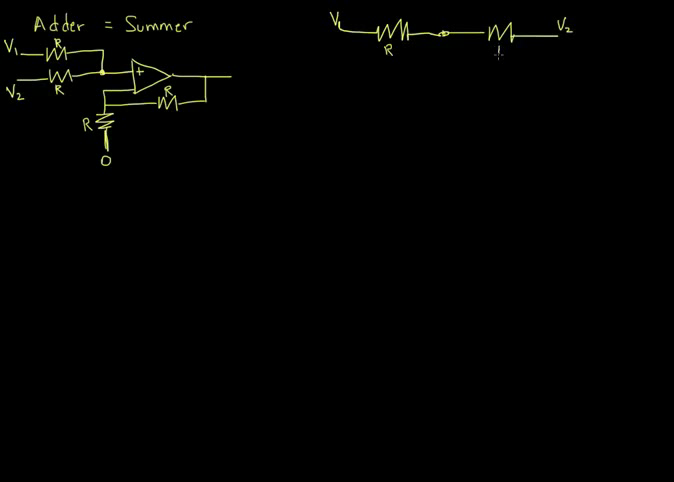 Adder = Summer
V1 R
V2 R
+
R
R
0
V1 R V2